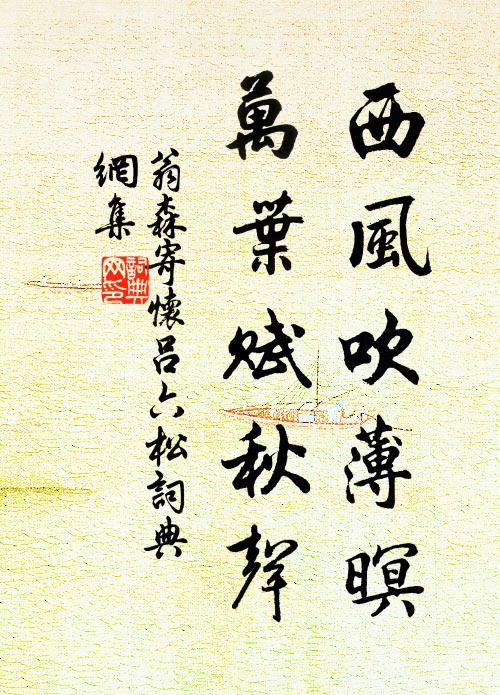 西風吹薄暝
萬葉賦秋聲
翁森寄懷呂六松詞典
網集
詞典
网印